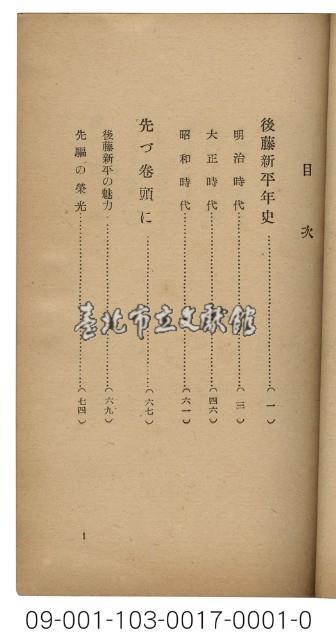 目次
後藤新平年史……………………(一)
明治時代……………………(三)
大正時代……………………(四六)
昭和時代……………………(六一)
先づ巻頭に……………………(六七)
後藤新平の魅力……………………(六九)
先驅の榮光……………………(七四)
1
臺北市立文獻館
09-001-103-0017-0001-0